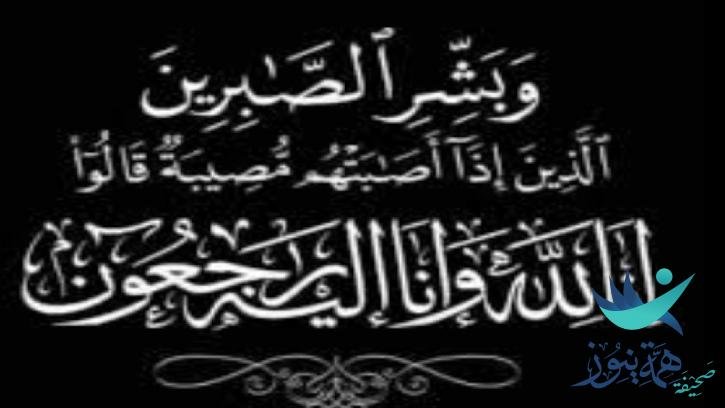 وَبَشِّرِ ٱلصَّـٰبِرِينَ
ٱلَّذِينَ إِذَآ أَصَـٰبَتْهُم مُّصِيبَةٌ قَالُوٓا۟
إنا لله وإنا إليه راجعون
صَحِيفَة هِمَّة نِيُوز